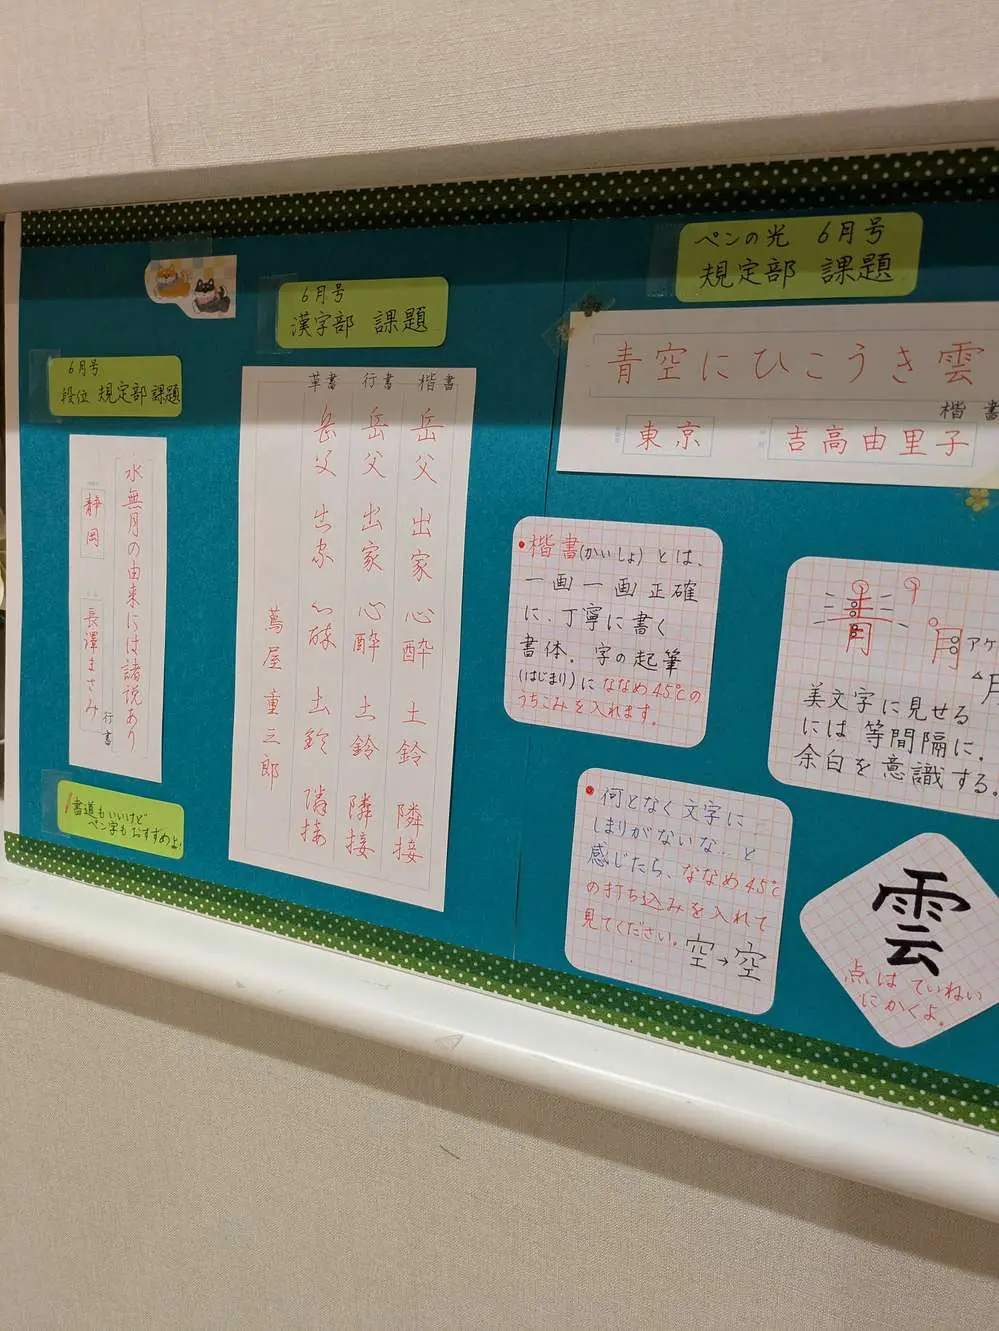 6月号
段位 規定部 課題
水無月の由来には諸説あり
行書
静岡
長澤まさみ
書道もいいけど
ペン字もおすすめよ♪
6月号
漢字部 課題
楷書
岳父 出家 心酔 土鈴 隣接
行書
岳父 出家 心酔 土鈴 隣接
草書
岳父 出家 心酔 土鈴 隣接
蔦屋重三郎
ペンの光 6月号
規定部 課題
青空にひこうき雲
楷書
東京
吉高由里子
楷書(かいしょ)とは、
一画一画正確
に、丁寧に書く
書体。字の起筆
(はじまり)にななめ45℃の
うちこみを入れます。
青
月
アケ
美文字に見せる
には 等間隔に。
余白を意識する。
何となく文字に
しまりがないな…と
感じたら、ななめ45℃
の打ち込みを入れて
見てください。
空→空
雲
点は ていねい
にかくよ。